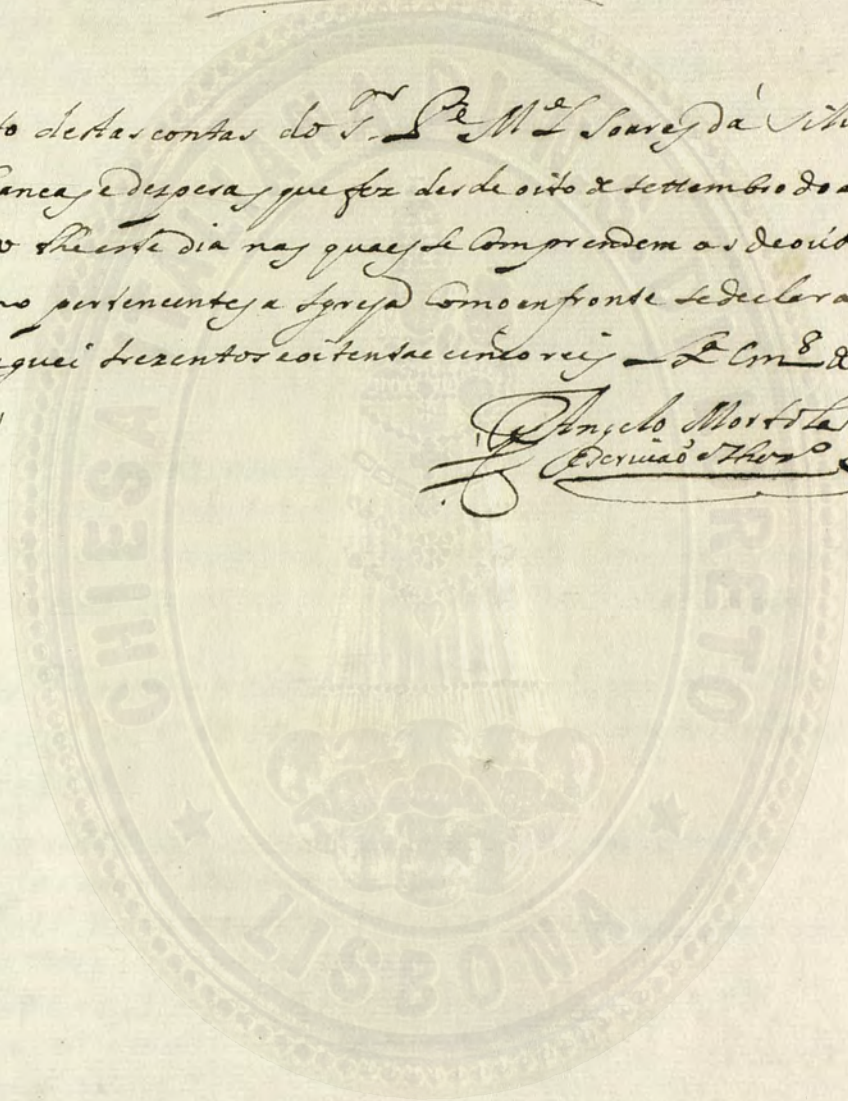 to destas contas do Sr. Pe Mel Soares da Silv
ancas e despesas que fez des de oito de settembro do a
o the este dia nas quaes se Comprendem as de oito
no pertencentes a Igreja Como en fronte se declara
eguei trezentos e oitenta e cinco reis
Angelo Mortola
Escrivaõ e Thezro
CHIESA
LORETO
LISBONA